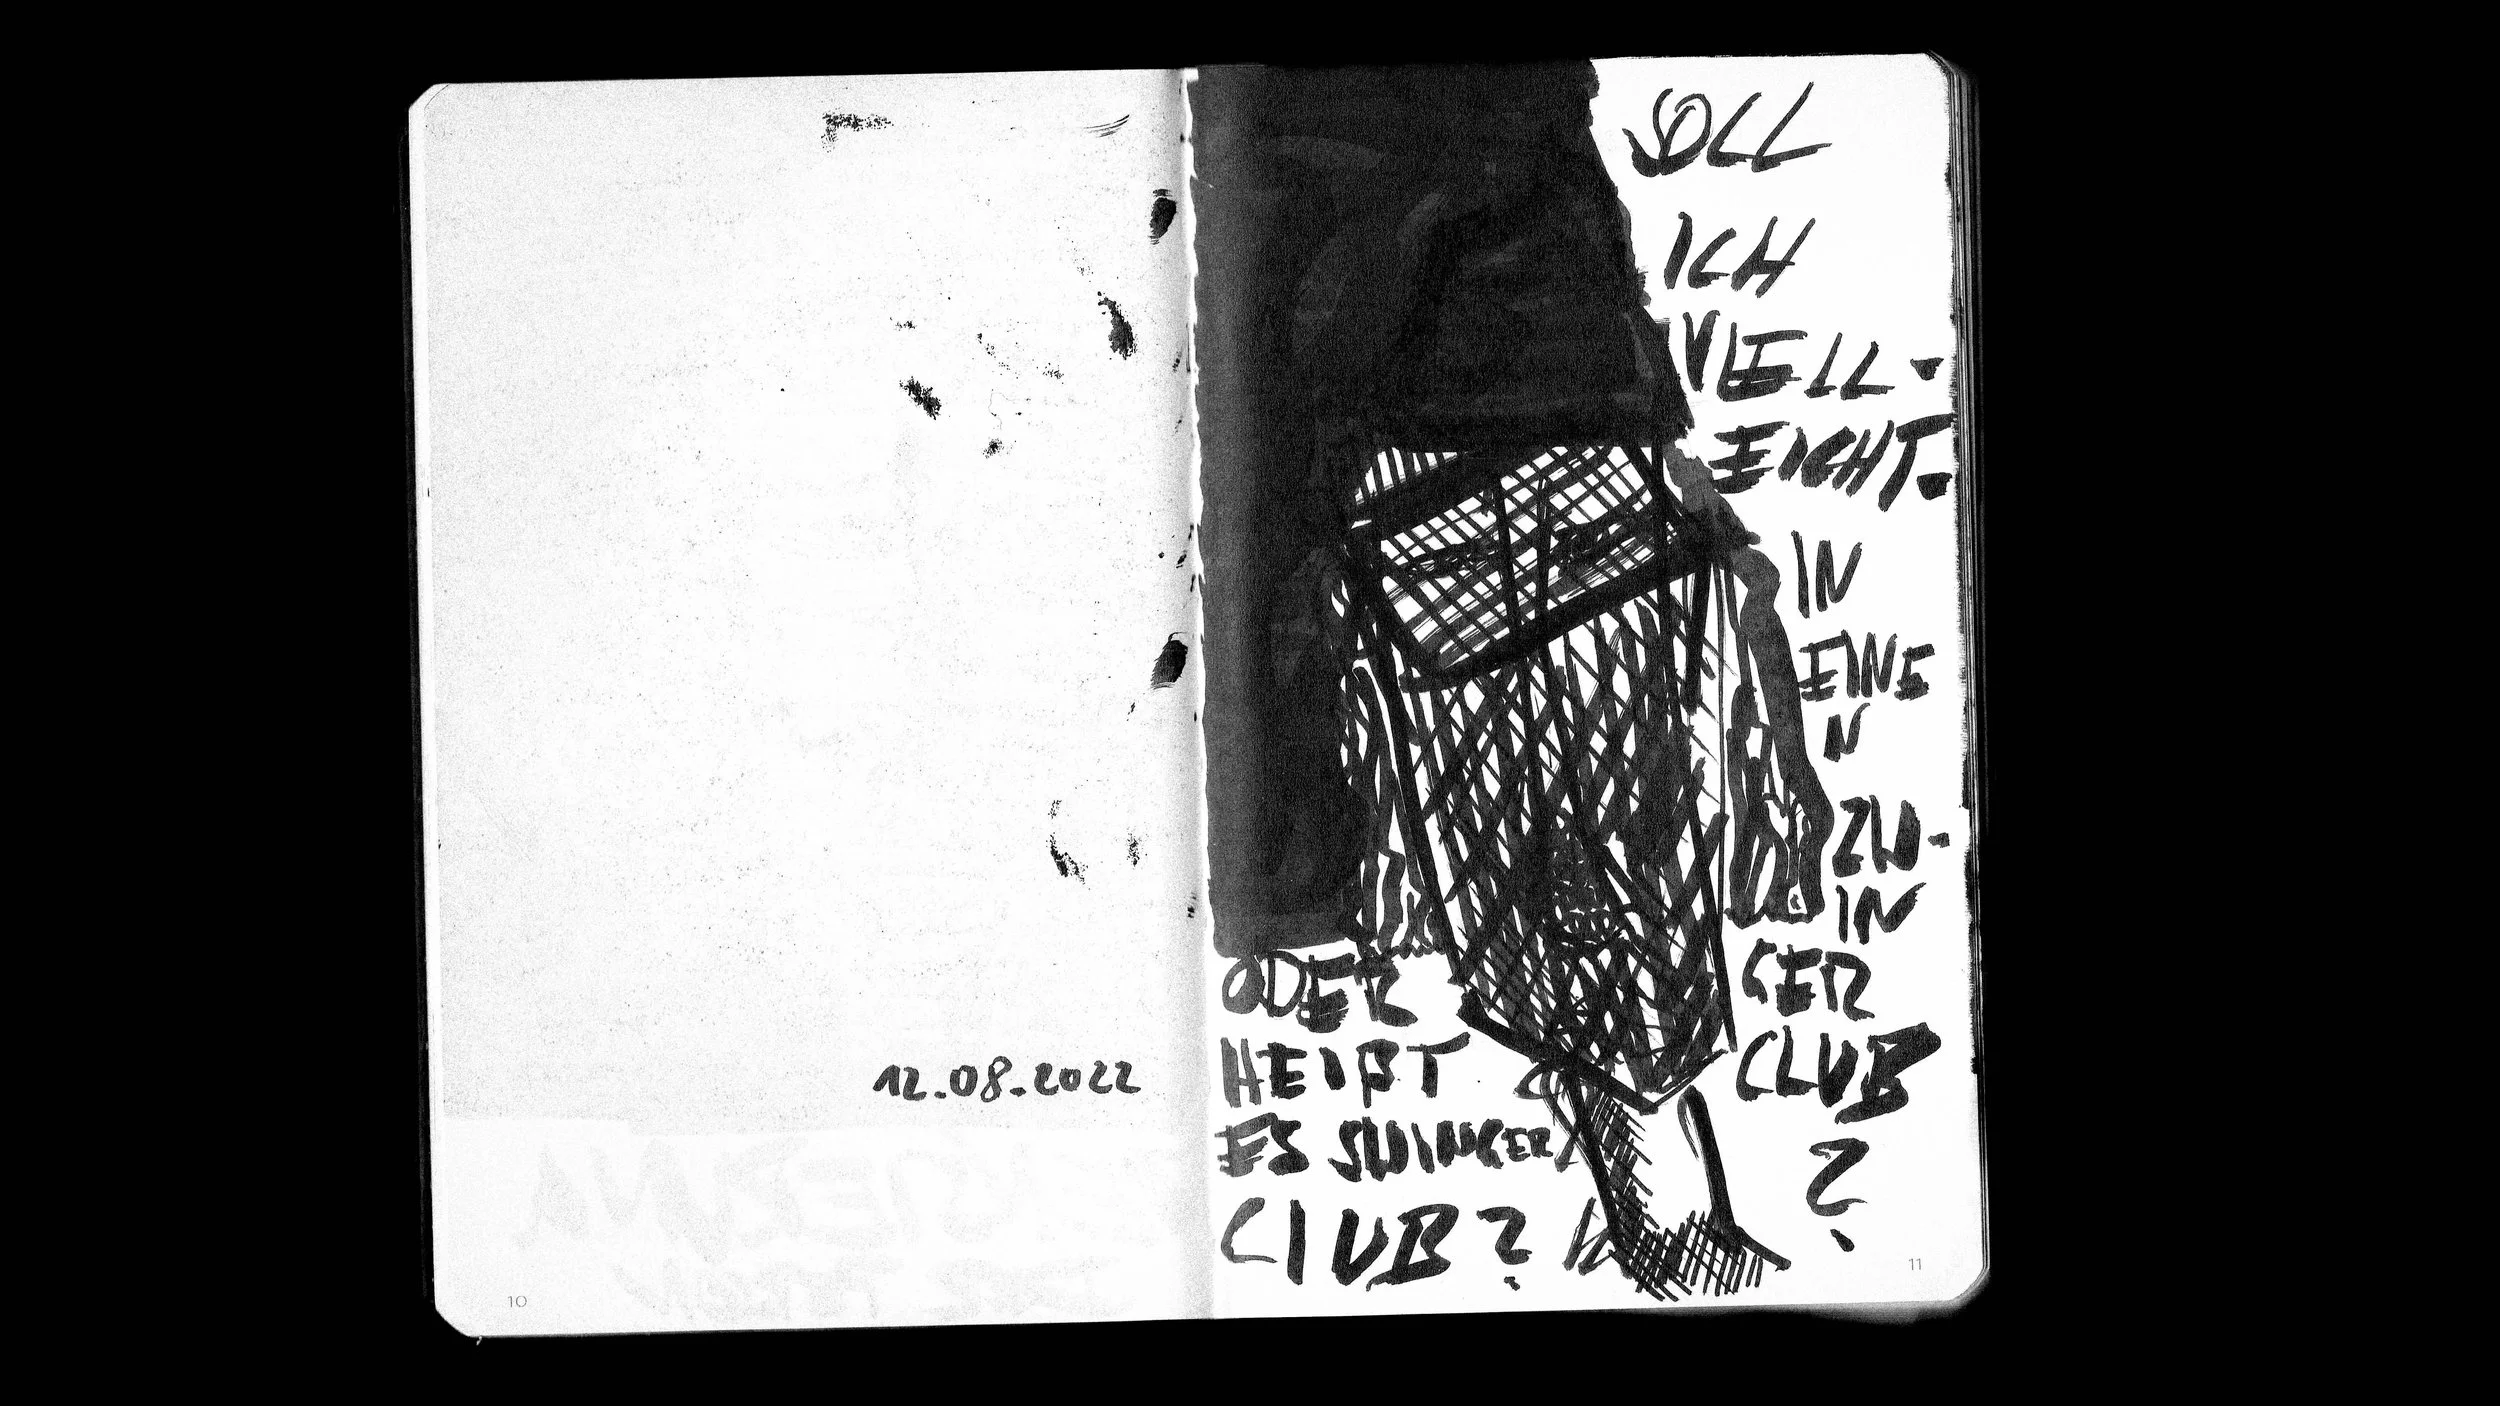 12.08.2022
10
SOLL
ICH
VIELL-
EICHT-
IN
EINE
N
ZW-
IN
GER
CLUB
?
ODER
HEIßT
ES SWINGER
CLUB?
11